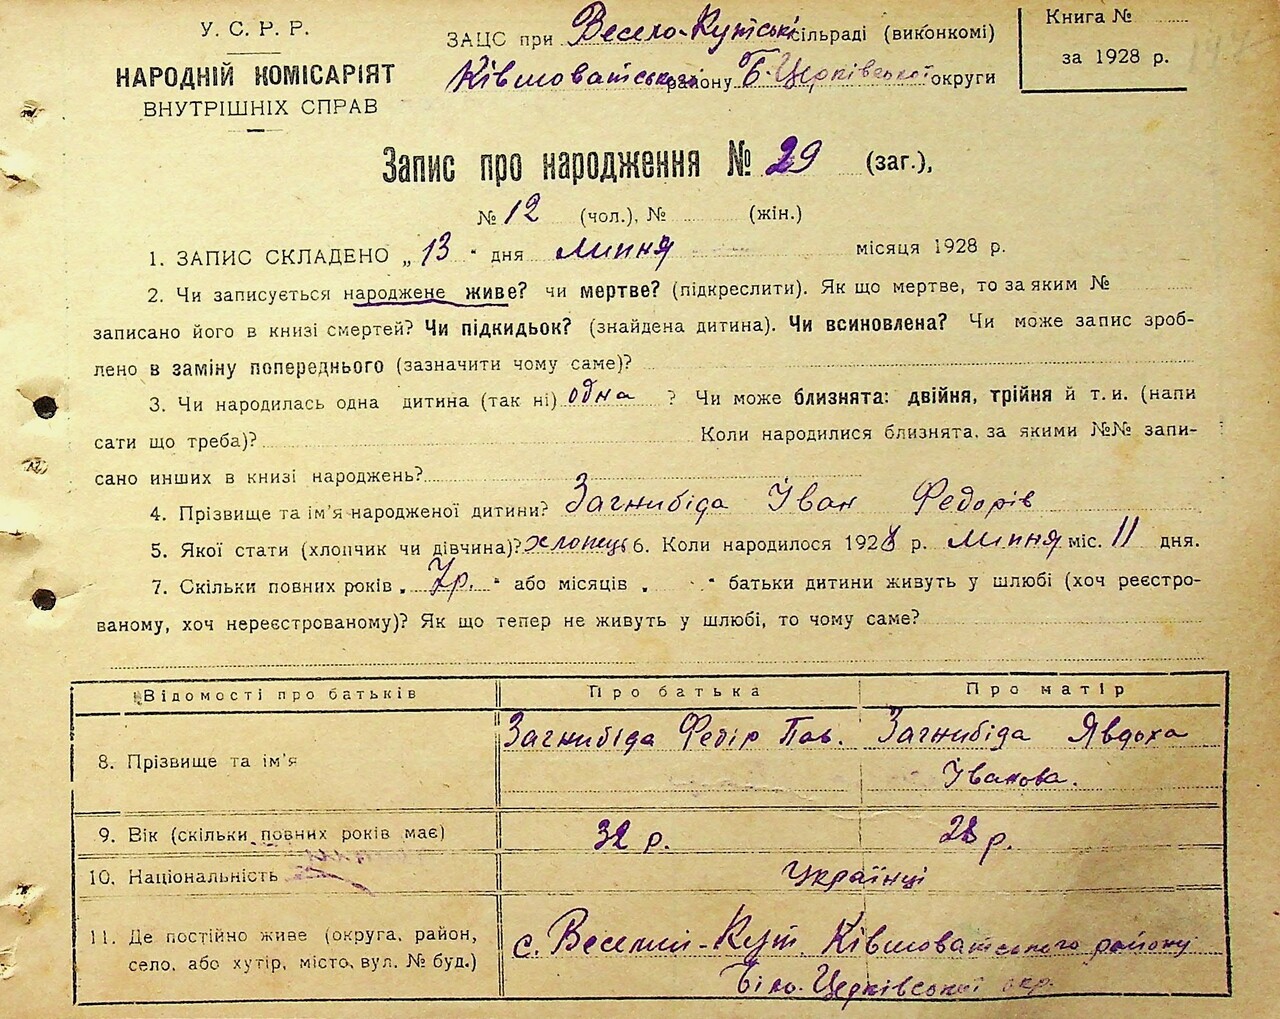 У. С. Р. Р.
НАРОДНІЙ КОМІСАРІЯТ
ВНУТРІШНІХ СПРАВ
ЗАЦС при Весело-Кутські сільраді (виконкомі)
Ківшоватського району Б-Церківської округи
Книга №
за 1928 р.
Запис про народження № 29 (заг.),
№ 12 (чол.), № (жін.)
1. ЗАПИС СКЛАДЕНО „ 13 " дня липня місяця 1928 р.
2. Чи записується народжене живе? чи мертве? (підкреслити). Як що мертве, то за яким №
записано його в книзі смертей? Чи підкидьок? (знайдена дитина). Чи всиновлена? Чи може запис зроб-
лено в заміну попереднього (зазначити чому саме)?
3. Чи народилась одна дитина (так ні) одна ? Чи може близнята: двійня, трійня й т. и. (напи
сати що треба)? Коли народилися близнята, за якими №№ запи-
сано инших в книзі народжень?
4. Прізвище та ім'я народженої дитини? Загнибіда Іван Федорів
5. Якої стати (хлопчик чи дівчина)? хлопець 6. Коли народилося 1928 р. липня міс. 11 дня.
7. Скільки повних років „ 7р. " або місяців „ " батьки дитини живуть у шлюбі (хоч реєстро-
ваному, хоч нереєстрованому)? Як що тепер не живуть у шлюбі, то чому саме?
Відомості про батьків Про батька Про матір
8. Прізвище та ім'я Загнибіда Федір Пав. Загнибіда Явдоха
Іванова.
9. Вік (скільки повних років має) 32 р. 28 р.
10. Національність Українці
11. Де постійно живе (округа, район, с. Веселий-Кут, Ківшоватського району
село, або хутір, місто, вул. № буд.) Біло-Церківської окр.